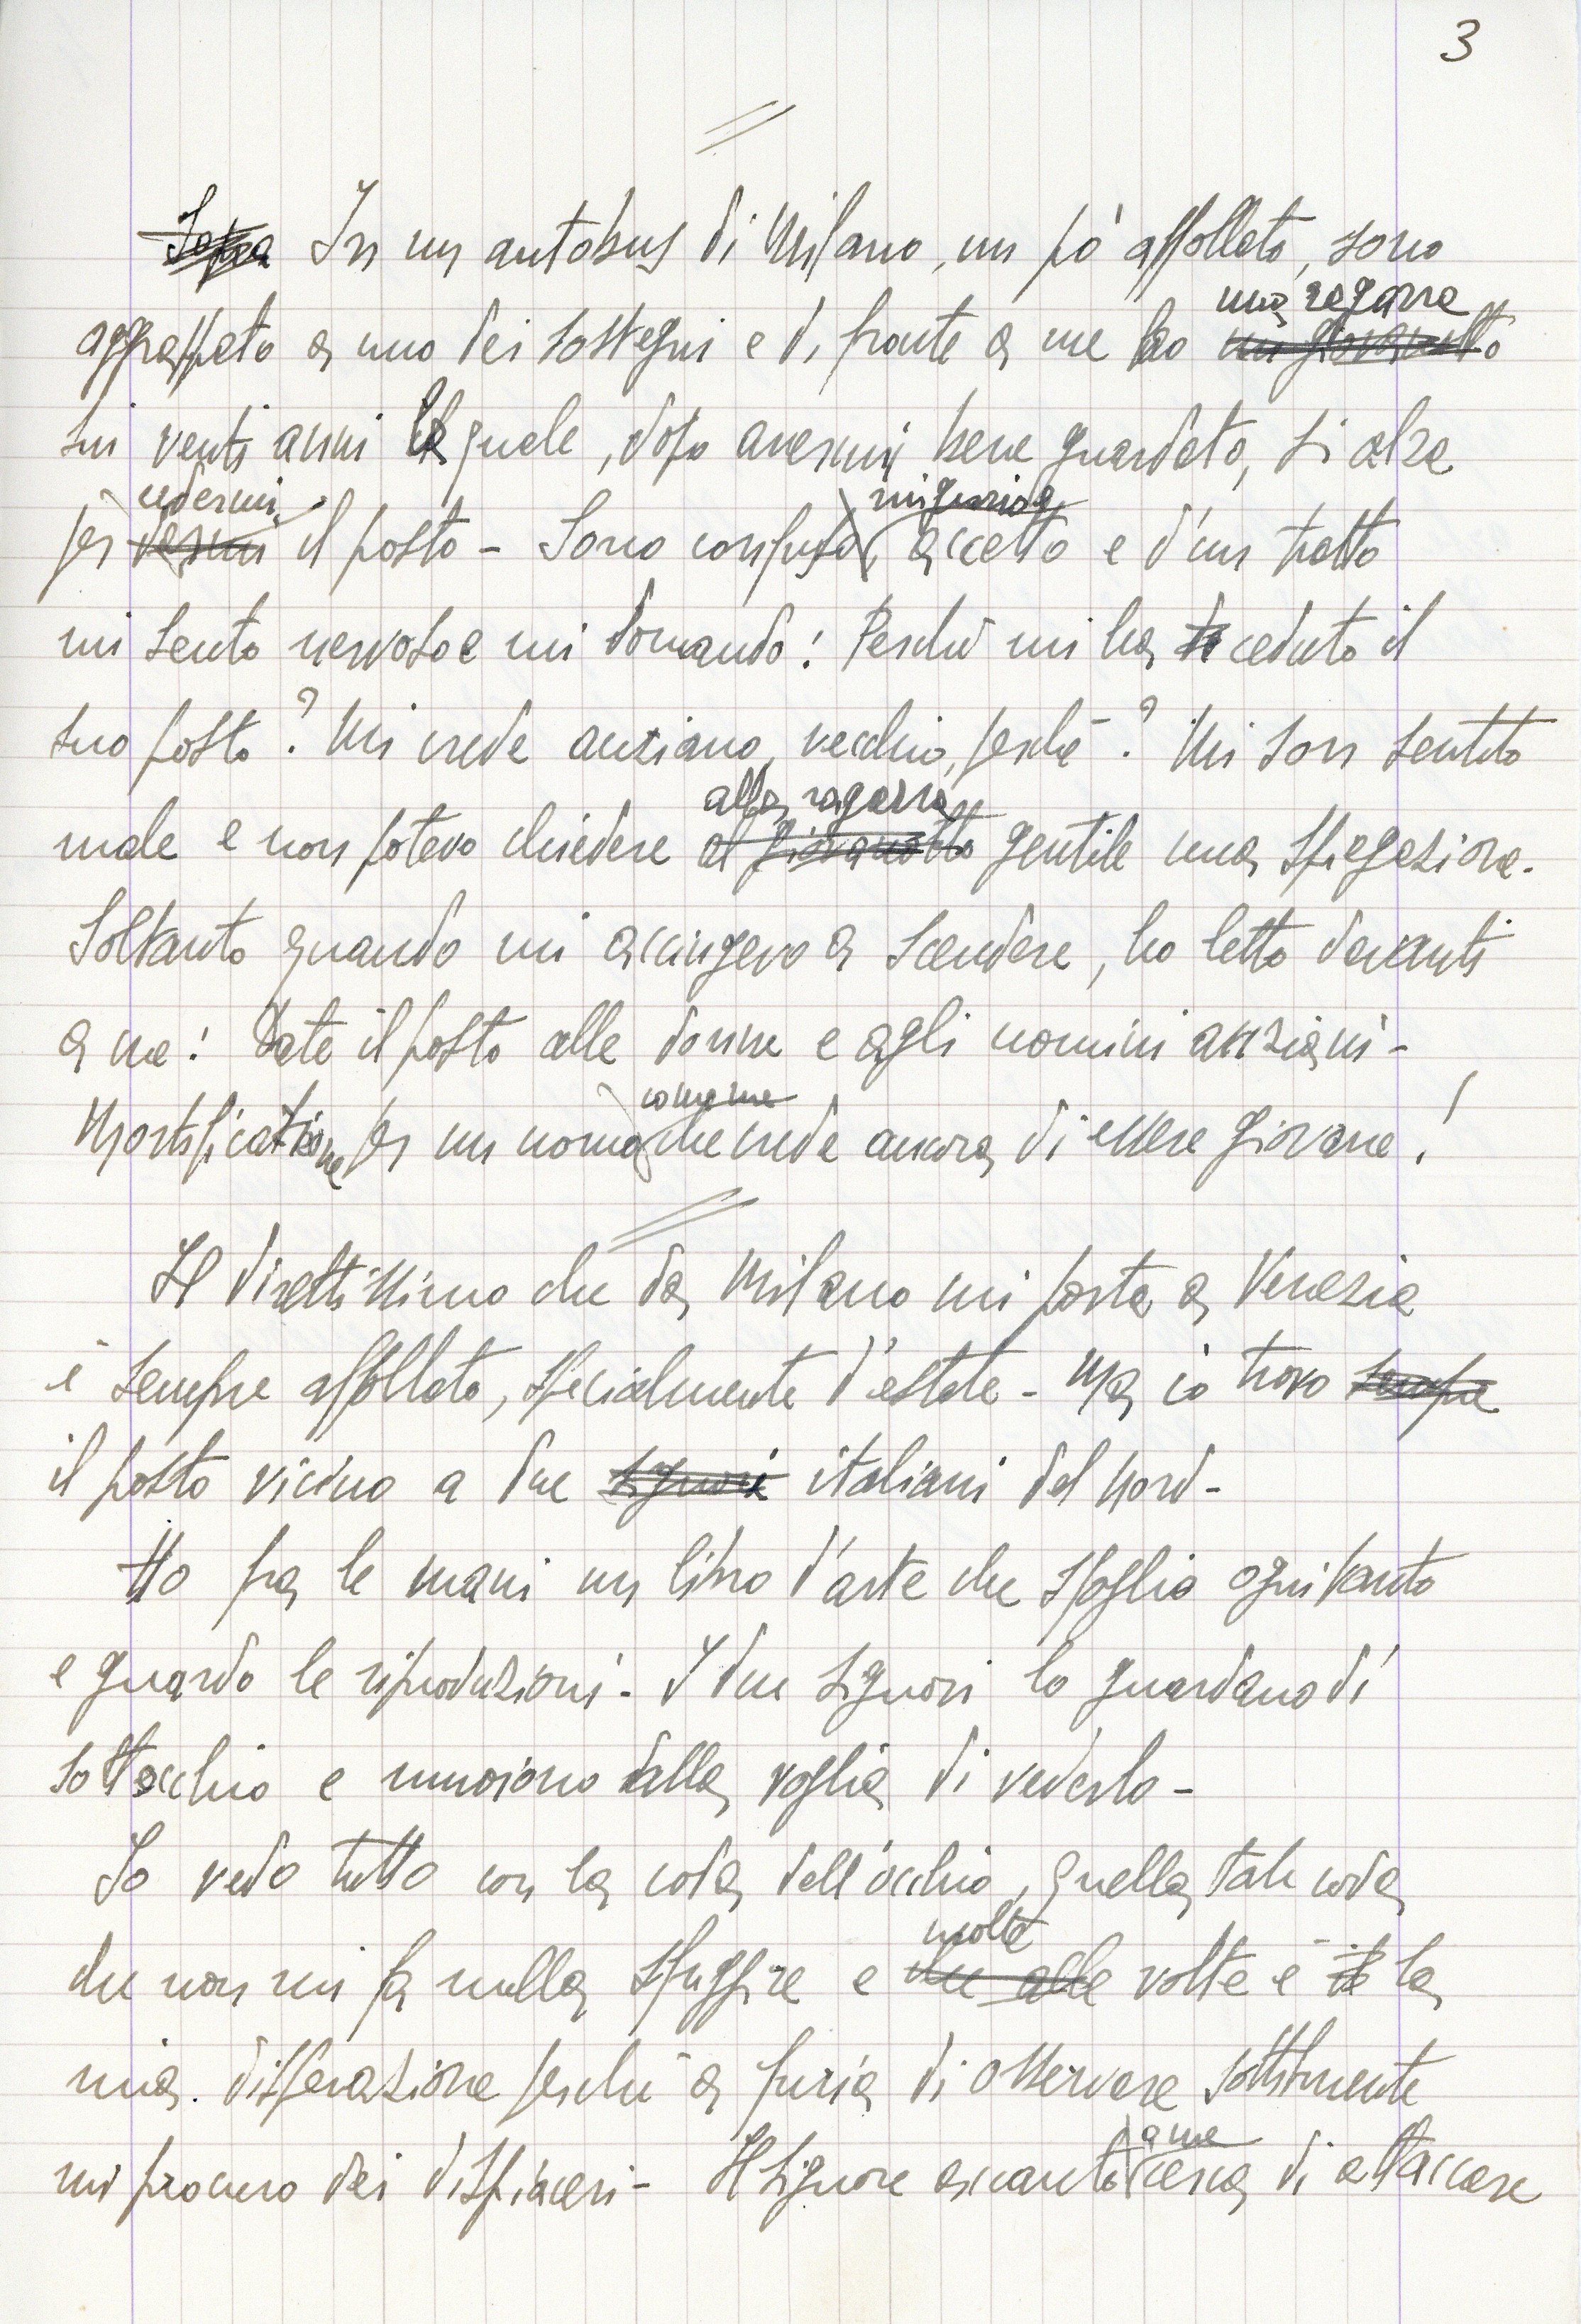 3
Sopra In un autobus di Milano, un pò affollato, sono
una ragazza
aggrappato a uno dei sostegni e di fronte a me ho un giovanotto
sui venti anni la quale, dopo avermi bene guardato, si alza
cedermi
per darmi il posto - Sono confuso, accetto e d'un tratto
mi sento nervoso e mi domando: Perchè mi ha ceduto il
suo posto? Mi crede anziano, vecchio, perchè? Mi son sentito
alla ragazza
male e non potevo chiedere al giovanotto gentile una spiegazione.
Soltanto quando mi accingevo a scendere, ho letto davanti
a me: Date il posto alle donne e agli uomini anziani -
come me
Mortificazione per un uomo che crede ancora di essere giovane!
Il direttissimo che da Milano mi porta a Venezia
è sempre affollato, specialmente d'estate - Ma io trovo sempre
il posto vicino a due signori italiani del nord -
Ho fra le mani un libro d'arte che sfoglio ogni tanto
e guardo le riproduzioni - I due signori lo guardano di
sottocchio e muoiono dalla voglia di vederlo -
Io vedo tutto con la coda dell'occhio, quella tale coda
molte
che non mi fa nulla sfuggire e che alle volte è la
mia disperazione perchè a furia di osservare sottilmente
a me
mi procuro dei dispiaceri - Il signore accanto cerca di attaccare